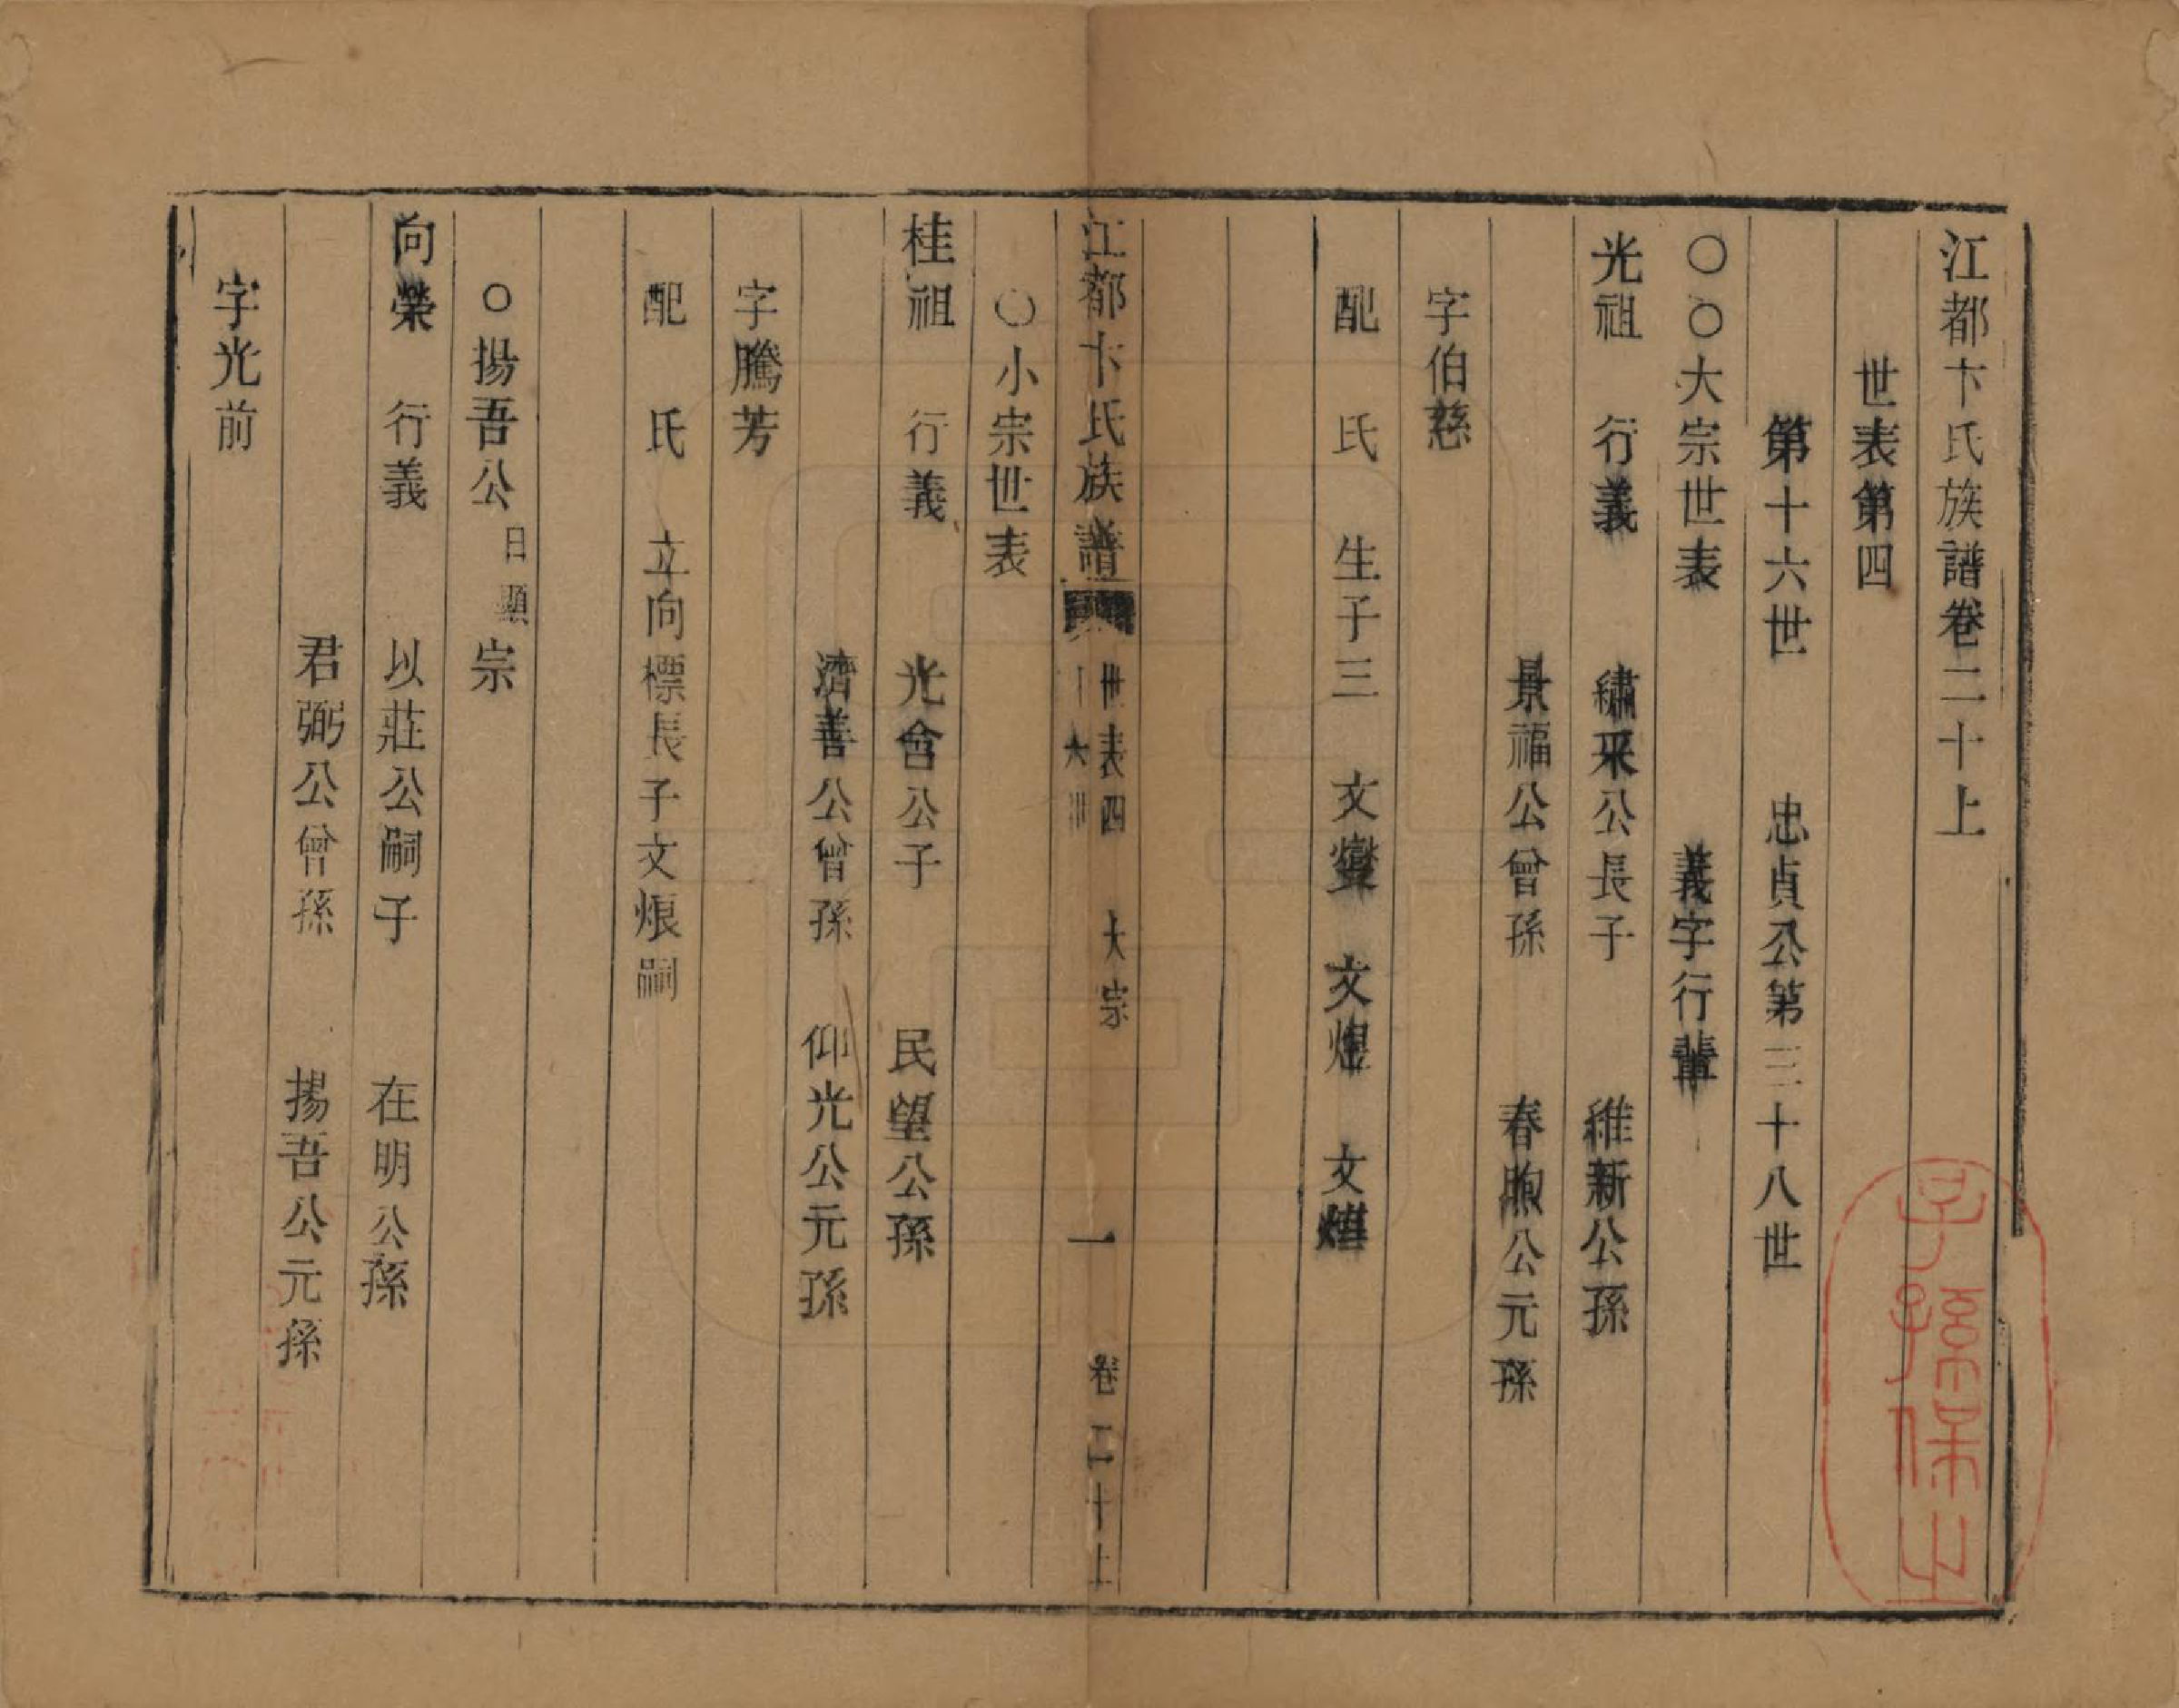 江都卞氏族譜卷二十上
世表第四
第十六世 忠貞公第三十八世
○○大宗世表 義字行輩
光祖 行義 繡采公長子 維新公孫
景福公曾孫 春煦公元孫
字伯慈
配 氏 生子三 文燮 文煜 文煒
江都卞氏族譜 世表四 十六世 大宗 一 卷二十上
○小宗世表
桂祖 行義 光含公子 民望公孫
濟善公曾孫 仰光公元孫
字騰芳
配 氏 立向標長子文烺嗣
○揚吾公日顯宗
向榮 行義 以莊公嗣子 在明公孫
君弼公曾孫 揚吾公元孫
字光前
子孫保之